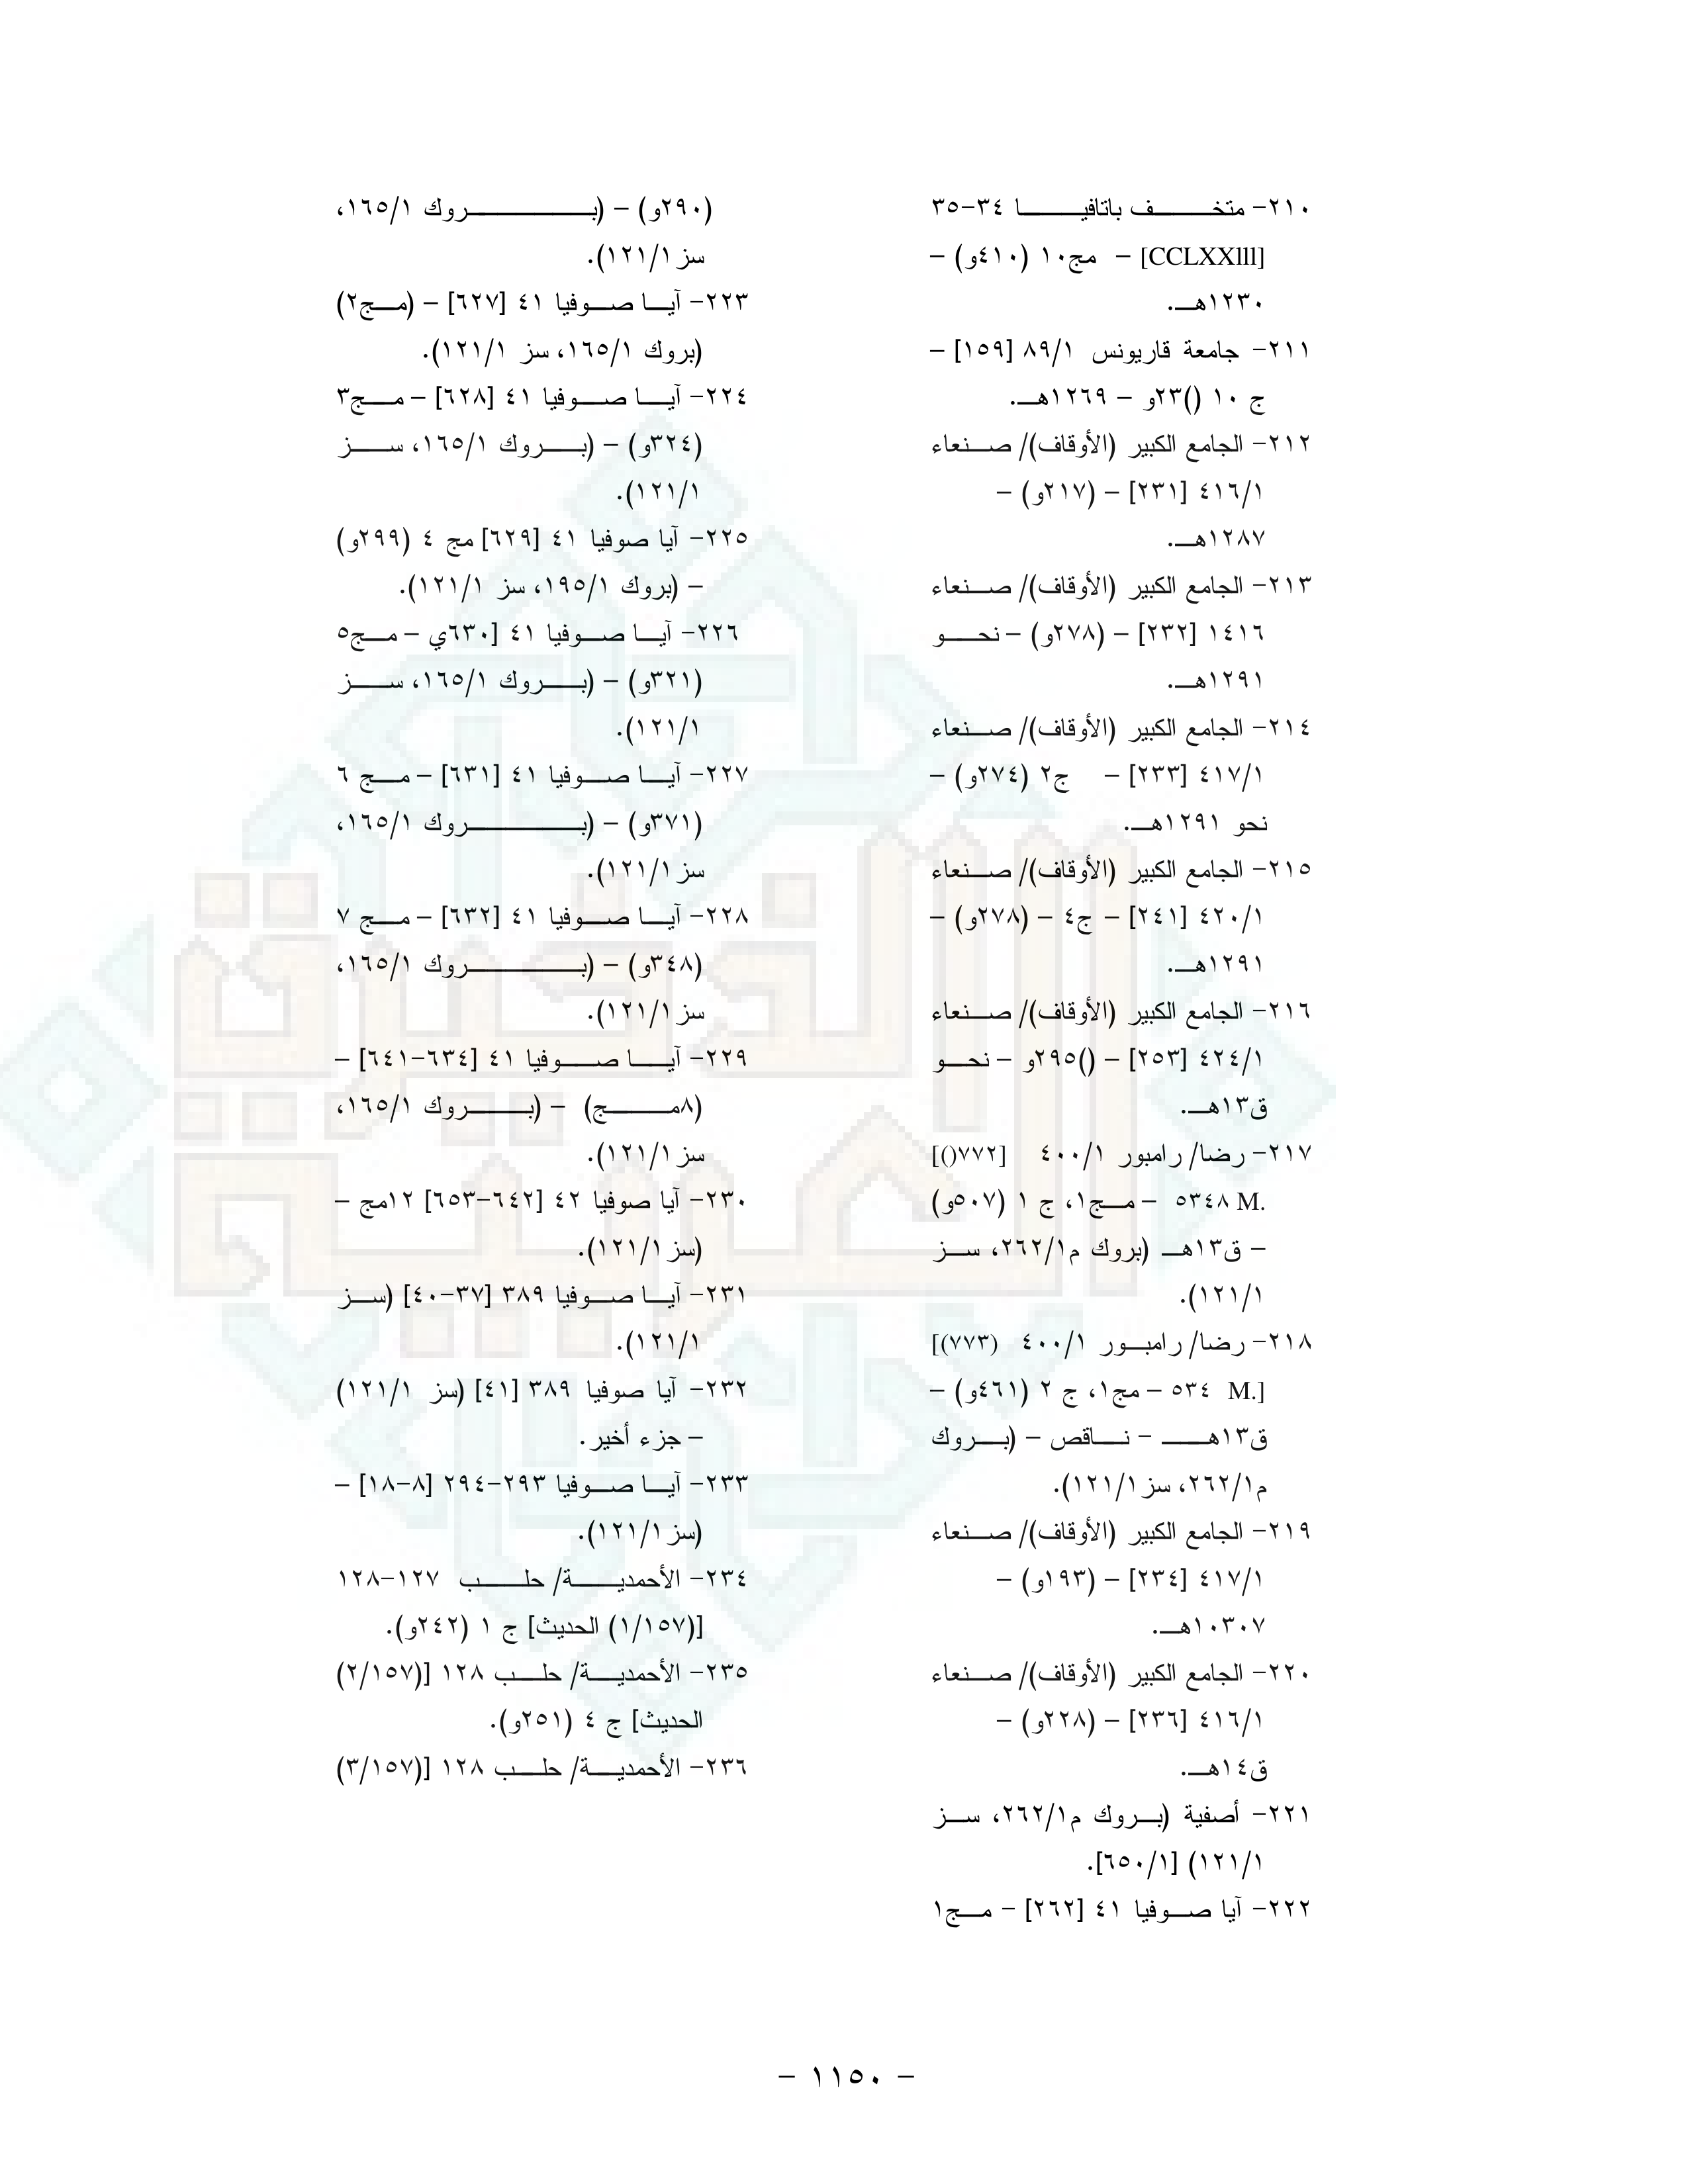 ٢١٠- متحف باتافيا ٣٤-٣٥
[CCLXXlll] - مج١٠ (٤١٠و) -
١٢٣٠هـ.
٢١١- جامعة قاريونس ٨٩/١ [١٥٩] -
ج ١٠ ()٢٣و - ١٢٦٩هـ.
٢١٢- الجامع الكبير (الأوقاف)/ صنعاء
٤١٦/١ [٢٣١] - (٢١٧و) -
١٢٨٧هـ.
٢١٣- الجامع الكبير (الأوقاف)/ صنعاء
١٤١٦ [٢٣٢] - (٢٧٨و) - نحو
١٢٩١هـ.
٢١٤- الجامع الكبير (الأوقاف)/ صنعاء
٤١٧/١ [٢٣٣] - ج٢ (٢٧٤و) -
نحو ١٢٩١هـ.
٢١٥- الجامع الكبير (الأوقاف)/ صنعاء
٤٢٠/١ [٢٤١] - ج٤ - (٢٧٨و) -
١٢٩١هـ.
٢١٦- الجامع الكبير (الأوقاف)/ صنعاء
٤٢٤/١ [٢٥٣] - ()٢٩٥و - نحو
ق١٣هـ.
٢١٧- رضا/ رامبور ٤٠٠/١ [٧٧٢()]
٥٣٤٨ M. - مج١، ج ١ (٥٠٧و)
- ق١٣هـ (بروك م٢٦٢/١، سز
١٢١/١).
٢١٨- رضا/ رامبور ٤٠٠/١ (٧٧٣)]
[.M ٥٣٤ - مج١، ج ٢ (٤٦١و) -
ق١٣هـ - ناقص - (بروك
م٢٦٢/١، سز١٢١/١).
٢١٩- الجامع الكبير (الأوقاف)/ صنعاء
٤١٧/١ [٢٣٤] - (١٩٣و) -
١٠٣٠٧هـ.
٢٢٠- الجامع الكبير (الأوقاف)/ صنعاء
٤١٦/١ [٢٣٦] - (٢٢٨و) -
ق١٤هـ.
٢٢١- أصفية (بروك م٢٦٢/١، سز
١٢١/١) [٦٥٠/١].
٢٢٢- آيا صوفيا ٤١ [٢٦٢] - مج١
(٢٩٠و) - (بروك ١٦٥/١،
سز١٢١/١).
٢٢٣- آيا صوفيا ٤١ [٦٢٧] - (مج٢)
(بروك ١٦٥/١، سز ١٢١/١).
٢٢٤- آيا صوفيا ٤١ [٦٢٨] - مج٣
(٣٢٤و) - (بروك ١٦٥/١، سز
١٢١/١).
٢٢٥- آيا صوفيا ٤١ [٦٢٩] مج ٤ (٢٩٩و)
- (بروك ١٩٥/١، سز ١٢١/١).
٢٢٦- آيا صوفيا ٤١ [٦٣٠ي - مج٥
(٣٢١و) - (بروك ١٦٥/١، سز
١٢١/١).
٢٢٧- آيا صوفيا ٤١ [٦٣١] - مج ٦
(٣٧١و) - (بروك ١٦٥/١،
سز١٢١/١).
٢٢٨- آيا صوفيا ٤١ [٦٣٢] - مج ٧
(٣٤٨و) - (بروك ١٦٥/١،
سز١٢١/١).
٢٢٩- آيا صوفيا ٤١ [٦٣٤-٦٤١] -
(٨مج) - (بروك ١٦٥/١،
سز١٢١/١).
٢٣٠- آيا صوفيا ٤٢ [٦٤٢-٦٥٣] ١٢مج -
(سز١٢١/١).
٢٣١- آيا صوفيا ٣٨٩ [٣٧-٤٠] (سز
١٢١/١).
٢٣٢- آيا صوفيا ٣٨٩ [٤١] (سز ١٢١/١)
- جزء أخير.
٢٣٣- آيا صوفيا ٢٩٣-٢٩٤ [٨-١٨] -
(سز١٢١/١).
٢٣٤- الأحمدية/ حلب ١٢٧-١٢٨
[(١/١٥٧) الحديث] ج ١ (٢٤٢و).
٢٣٥- الأحمدية/ حلب ١٢٨ [(٢/١٥٧)
الحديث] ج ٤ (٢٥١و).
٢٣٦- الأحمدية/ حلب ١٢٨ [(٣/١٥٧)
- ١١٥٠ -
الذخيرة
العربية